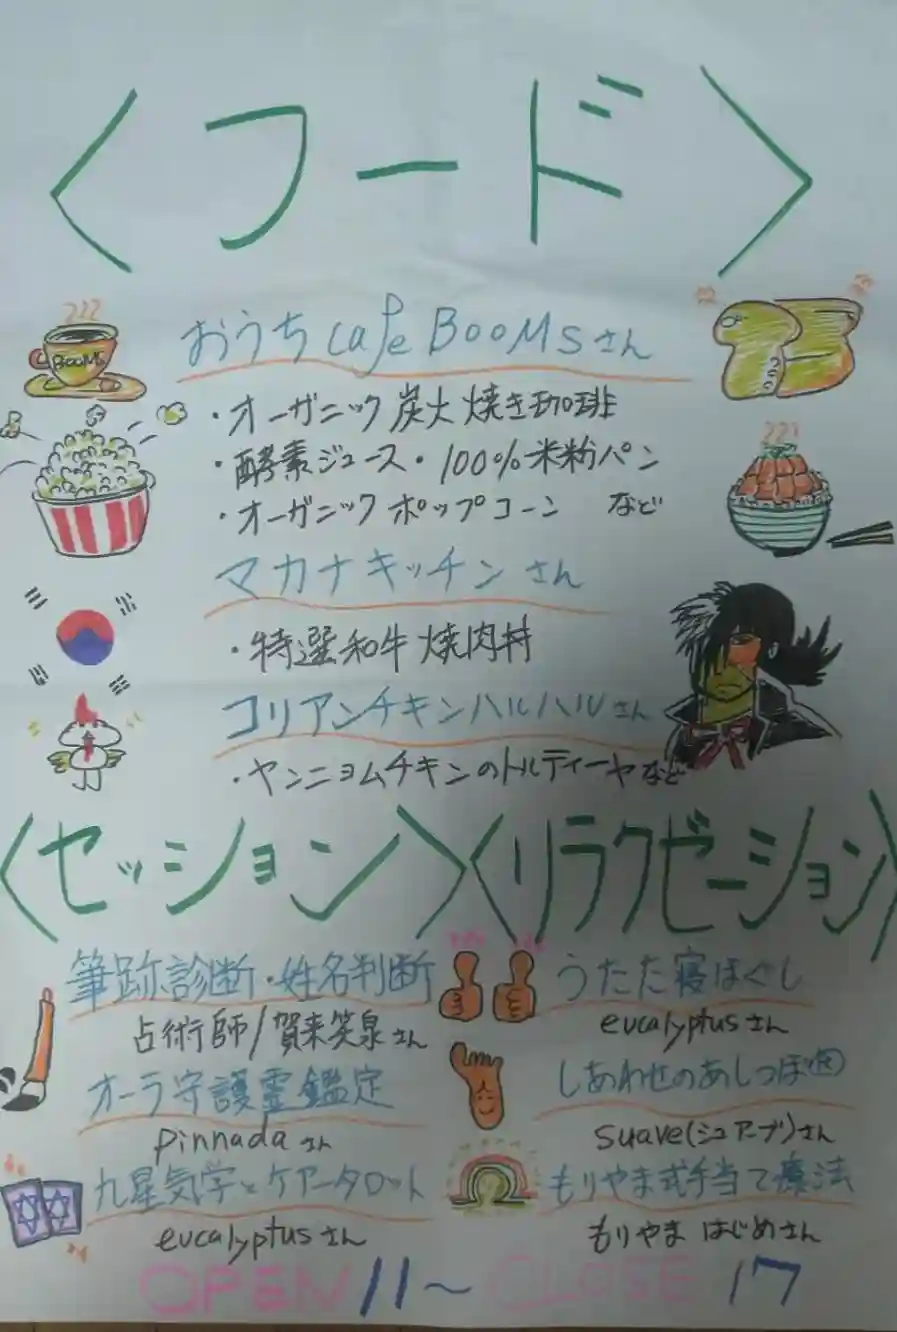 〈フード〉
おうちcafe BooMsさん
BooMs
・オーガニック炭火焼き珈琲
・酵素ジュース・100%米粉パン
・オーガニックポップコーン など
マカナキッチンさん
・特選和牛焼肉丼
コリアンチキンハルハルさん
・ヤンニョムチキンのトルティーヤなど
〈セッション〉
筆跡診断・姓名判断
占術師/賀来笑泉さん
オーラ守護霊鑑定
pinnadaさん
九星気学とケアータロット
eucalyptusさん
〈リラクゼーション〉
うたた寝ほぐし
eucalyptusさん
しあわせのあしつぼ
suave(シュアーブ)さん
もりやま式手当て療法
もりやま はじめさん
OPEN 11〜CLOSE 17